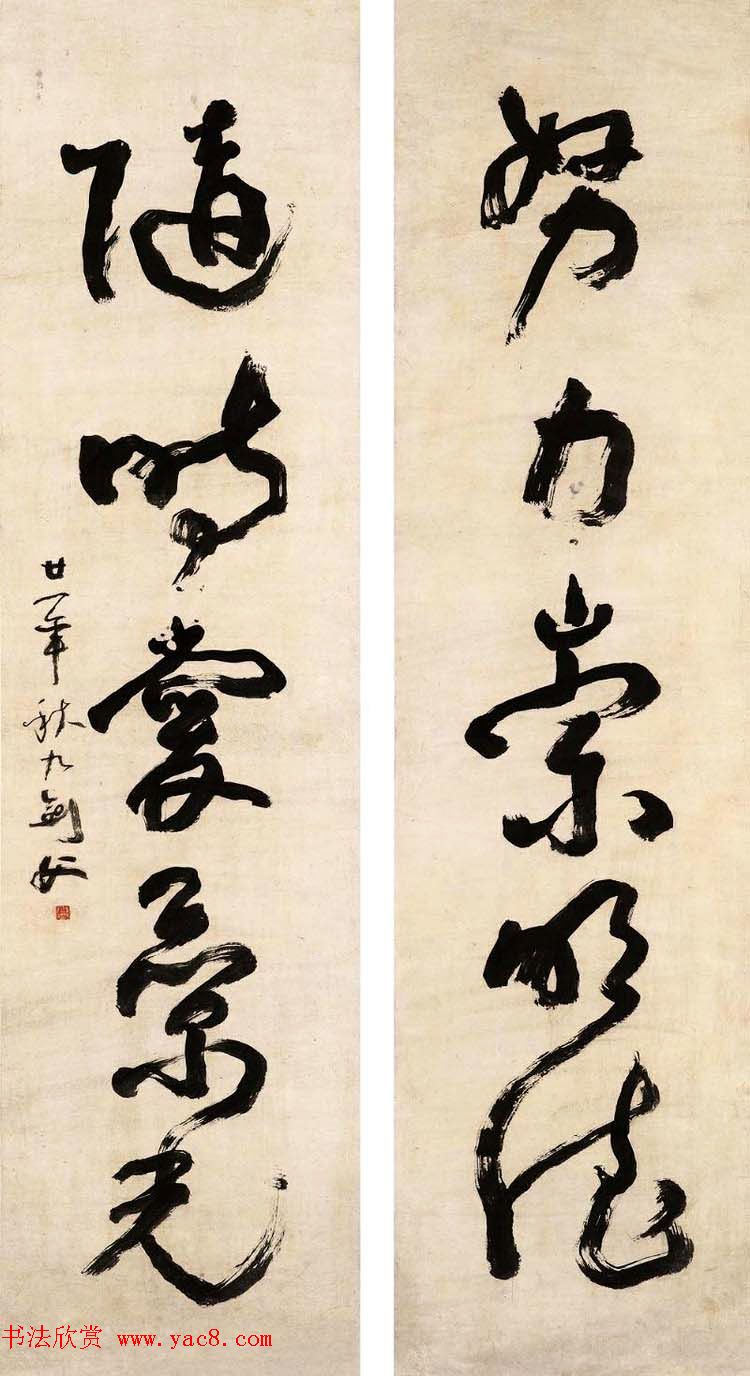 努力崇明德
隨時愛景光
廿一年秋九劍父
书法欣赏 www.yac8.com